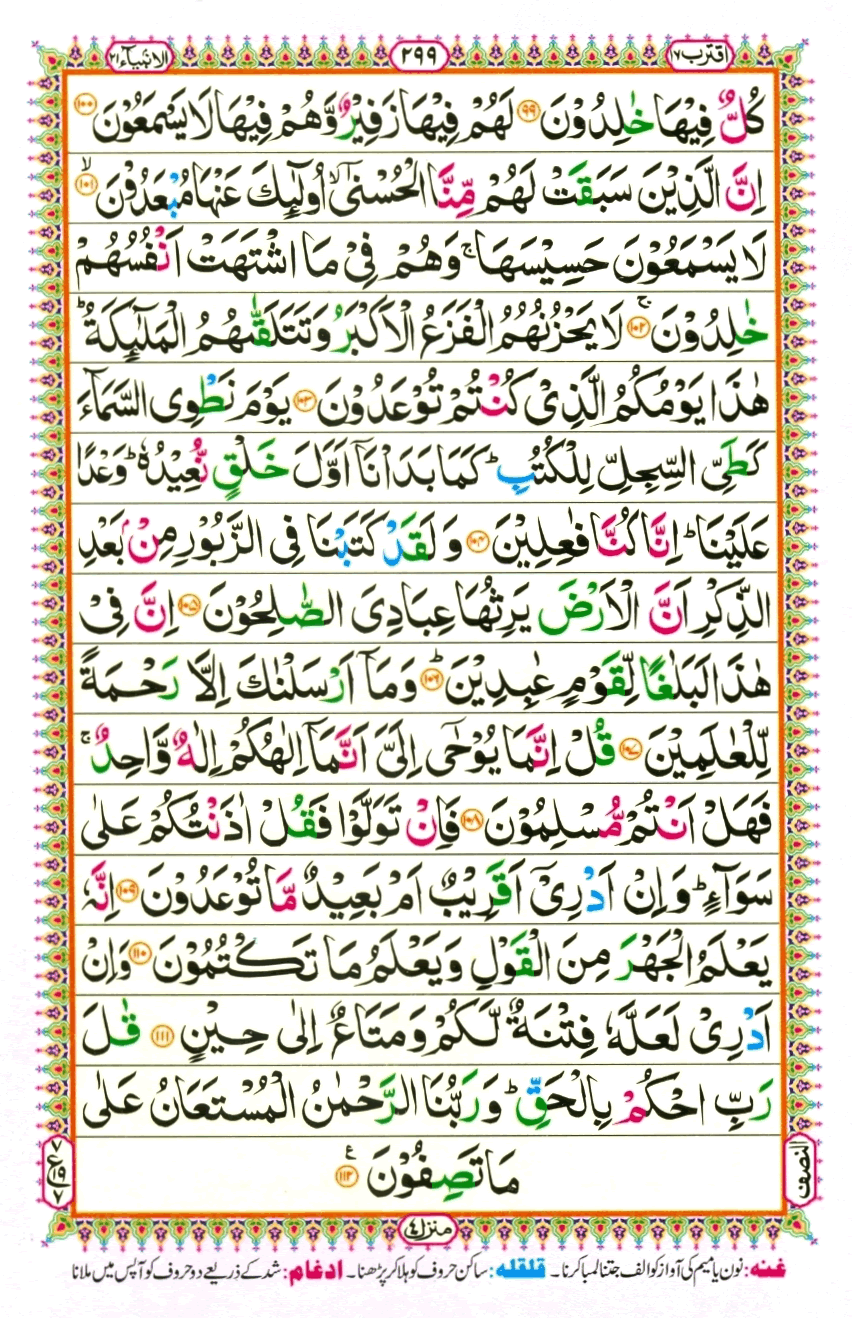 اقترب ١٧
٢٩٩
الانبیآء ٢١
كُلٌّ فِیْهَا خٰلِدُوْنَ ﴿۹۹﴾ لَهُمْ فِیْهَا زَفِیْرٌ وَّهُمْ فِیْهَا لَا یَسْمَعُوْنَ ﴿۱۰۰﴾
اِنَّ الَّذِیْنَ سَبَقَتْ لَهُمْ مِّنَّا الْحُسْنٰۤى ۙ اُولٰٓىِٕكَ عَنْهَا مُبْعَدُوْنَ ﴿۱۰۱﴾ ۙ
لَا یَسْمَعُوْنَ حَسِیْسَهَا ۚ وَهُمْ فِیْ مَا اشْتَهَتْ اَنْفُسُهُمْ
خٰلِدُوْنَ ﴿۱۰۲﴾ ۚ لَا یَحْزُنُهُمُ الْفَزَعُ الْاَكْبَرُ وَتَتَلَقّٰىهُمُ الْمَلٰٓىِٕكَةُ ؕ
هٰذَا یَوْمُكُمُ الَّذِیْ كُنْتُمْ تُوْعَدُوْنَ ﴿۱۰۳﴾ یَوْمَ نَطْوِی السَّمَآءَ
كَطَیِّ السِّجِلِّ لِلْكُتُبِ ؕ كَمَا بَدَاْنَاۤ اَوَّلَ خَلْقٍ نُّعِیْدُهٗ ؕ وَعْدًا
عَلَیْنَا ؕ اِنَّا كُنَّا فٰعِلِیْنَ ﴿۱۰۴﴾ وَلَقَدْ كَتَبْنَا فِی الزَّبُوْرِ مِنْۢ بَعْدِ
الذِّكْرِ اَنَّ الْاَرْضَ یَرِثُهَا عِبَادِیَ الصّٰلِحُوْنَ ﴿۱۰۵﴾ اِنَّ فِیْ
هٰذَا لَبَلٰغًا لِّقَوْمٍ عٰبِدِیْنَ ﴿۱۰۶﴾ ؕ وَمَاۤ اَرْسَلْنٰكَ اِلَّا رَحْمَةً
لِّلْعٰلَمِیْنَ ﴿۱۰۷﴾ قُلْ اِنَّمَا یُوْحٰۤى اِلَیَّ اَنَّمَاۤ اِلٰهُكُمْ اِلٰهٌ وَّاحِدٌ ۚ
فَهَلْ اَنْتُمْ مُّسْلِمُوْنَ ﴿۱۰۸﴾ فَاِنْ تَوَلَّوْا فَقُلْ اٰذَنْتُكُمْ عَلٰى
سَوَآءٍ ؕ وَاِنْ اَدْرِیْۤ اَقَرِیْبٌ اَمْ بَعِیْدٌ مَّا تُوْعَدُوْنَ ﴿۱۰۹﴾ اِنَّهٗ
یَعْلَمُ الْجَهْرَ مِنَ الْقَوْلِ وَیَعْلَمُ مَا تَكْتُمُوْنَ ﴿۱۱۰﴾ وَاِنْ
اَدْرِیْ لَعَلَّهٗ فِتْنَةٌ لَّكُمْ وَمَتَاعٌ اِلٰى حِیْنٍ ﴿۱۱۱﴾ قٰلَ
رَبِّ احْكُمْ بِالْحَقِّ ؕ وَرَبُّنَا الرَّحْمٰنُ الْمُسْتَعَانُ عَلٰى
مَا تَصِفُوْنَ ﴿۱۱۲﴾ ع
النصف
٧
ع ١٩
٧
منزل ٤
غنه: نون یا میم کی آواز کو الف جتنا لمبا کرنا۔ قلقله: ساکن حروف کو ہلا کر پڑھنا۔ ادغام: شد کے ذریعے دو حروف کو آپس میں ملانا